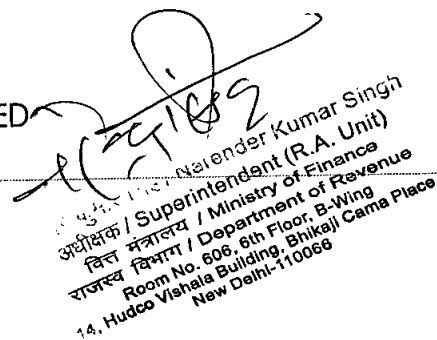 ED
Narender Kumar Singh
अधीक्षक / Superintendent (R.A. Unit)
वित्त मंत्रालय / Ministry of Finance
राजस्व विभाग / Department of Revenue
Room No. 606, 6th Floor, B-Wing
14, Hudco Vishala Building, Bhikaji Cama Place
New Delhi-110066